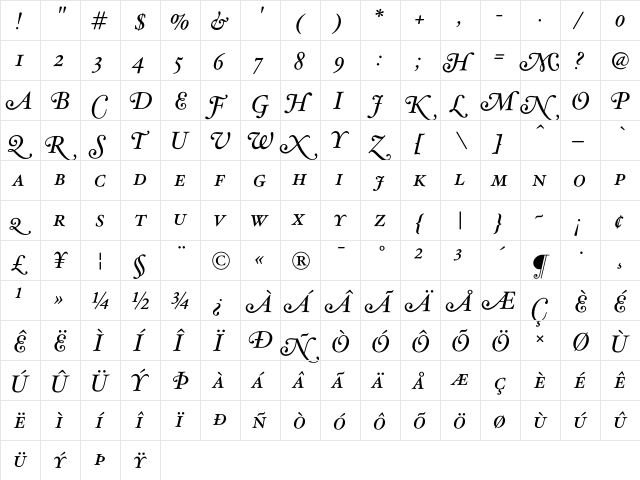 ! " # $ % & ' ( ) * + , - . / 0
1 2 3 4 5 6 7 8 9 : ; H = M ? @
A B C D E F G H I J K L M N O P
Q R S T U V W X Y Z [ \ ] ^ _ `
A B C D E F G H I J K L M N O P
Q R S T U V W X Y Z { | } ~ ¡ ¢
£ ¥ ¦ § ¨ © « ® ¯ ° ² ³ ´ ¶ · ¸
¹ » ¼ ½ ¾ ¿ À Á Â Ã Ä Å Æ Ç È É
Ê Ë Ì Í Î Ï Ð Ñ Ò Ó Ô Õ Ö × Ø Ù
Ú Û Ü Ý Þ À Á Â Ã Ä Å Æ Ç È É Ê
Ë Ì Í Î Ï Ð Ñ Ò Ó Ô Õ Ö Ø Ù Ú Û
Ü Ý Þ Ÿ